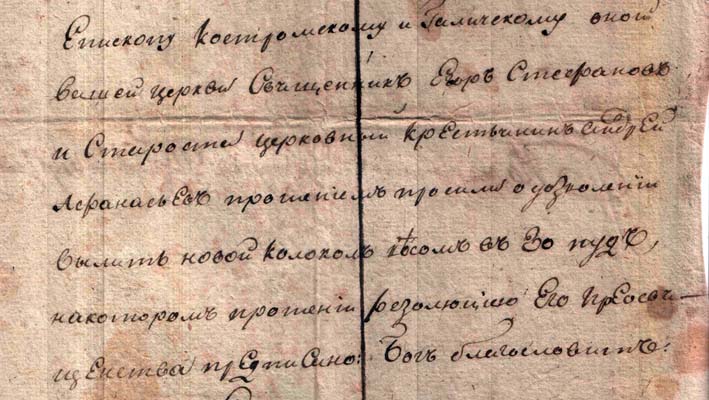 Епископу Костромскому и Галичскому оной
вашей церкви Священникъ Егоръ Стефановъ
и Староста церковный крестьянинъ Андрей
Афанасьевъ прошениемъ просили о дозволении
вылить новой колоколъ весомъ въ 30 пудъ,
на которомъ прошении резолюциею Его Преосвя-
щенства предписано: Богъ благословитъ: